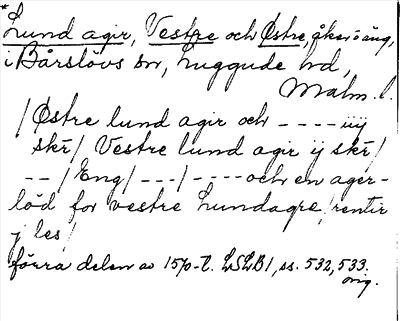 *
Lund agir, Vestre och Østre, åker o äng,
i Bårslövs sn, Luggude hd,
Malm. l.
/Østre lund agir och ---- iiij
skr/ Vestre lund agir ij skr/
-- / Eng / --- / ---- och en ager-
löd for vestre Lundagre /rentir
j les/
förra delen av 1570-t. LSLB1, ss. 532, 533.
orig.